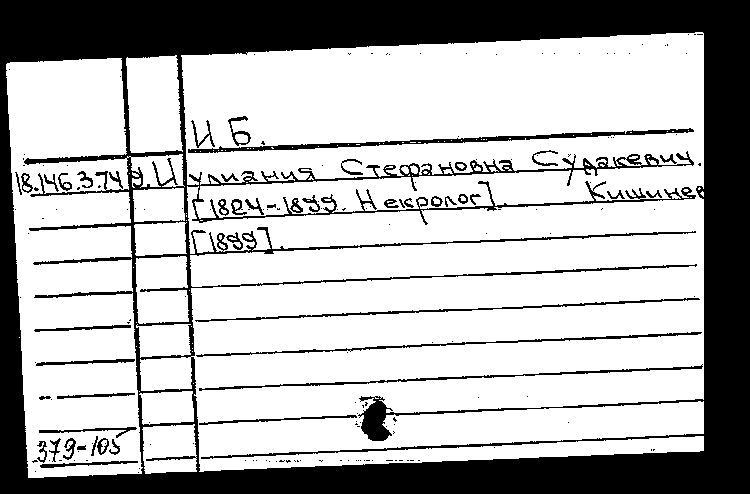 И. Б.
18.146.3.74 У. Иулиания Стефановна Судакевич.
[1824-1899. Некролог]. Кишинев
[1899].
379-105